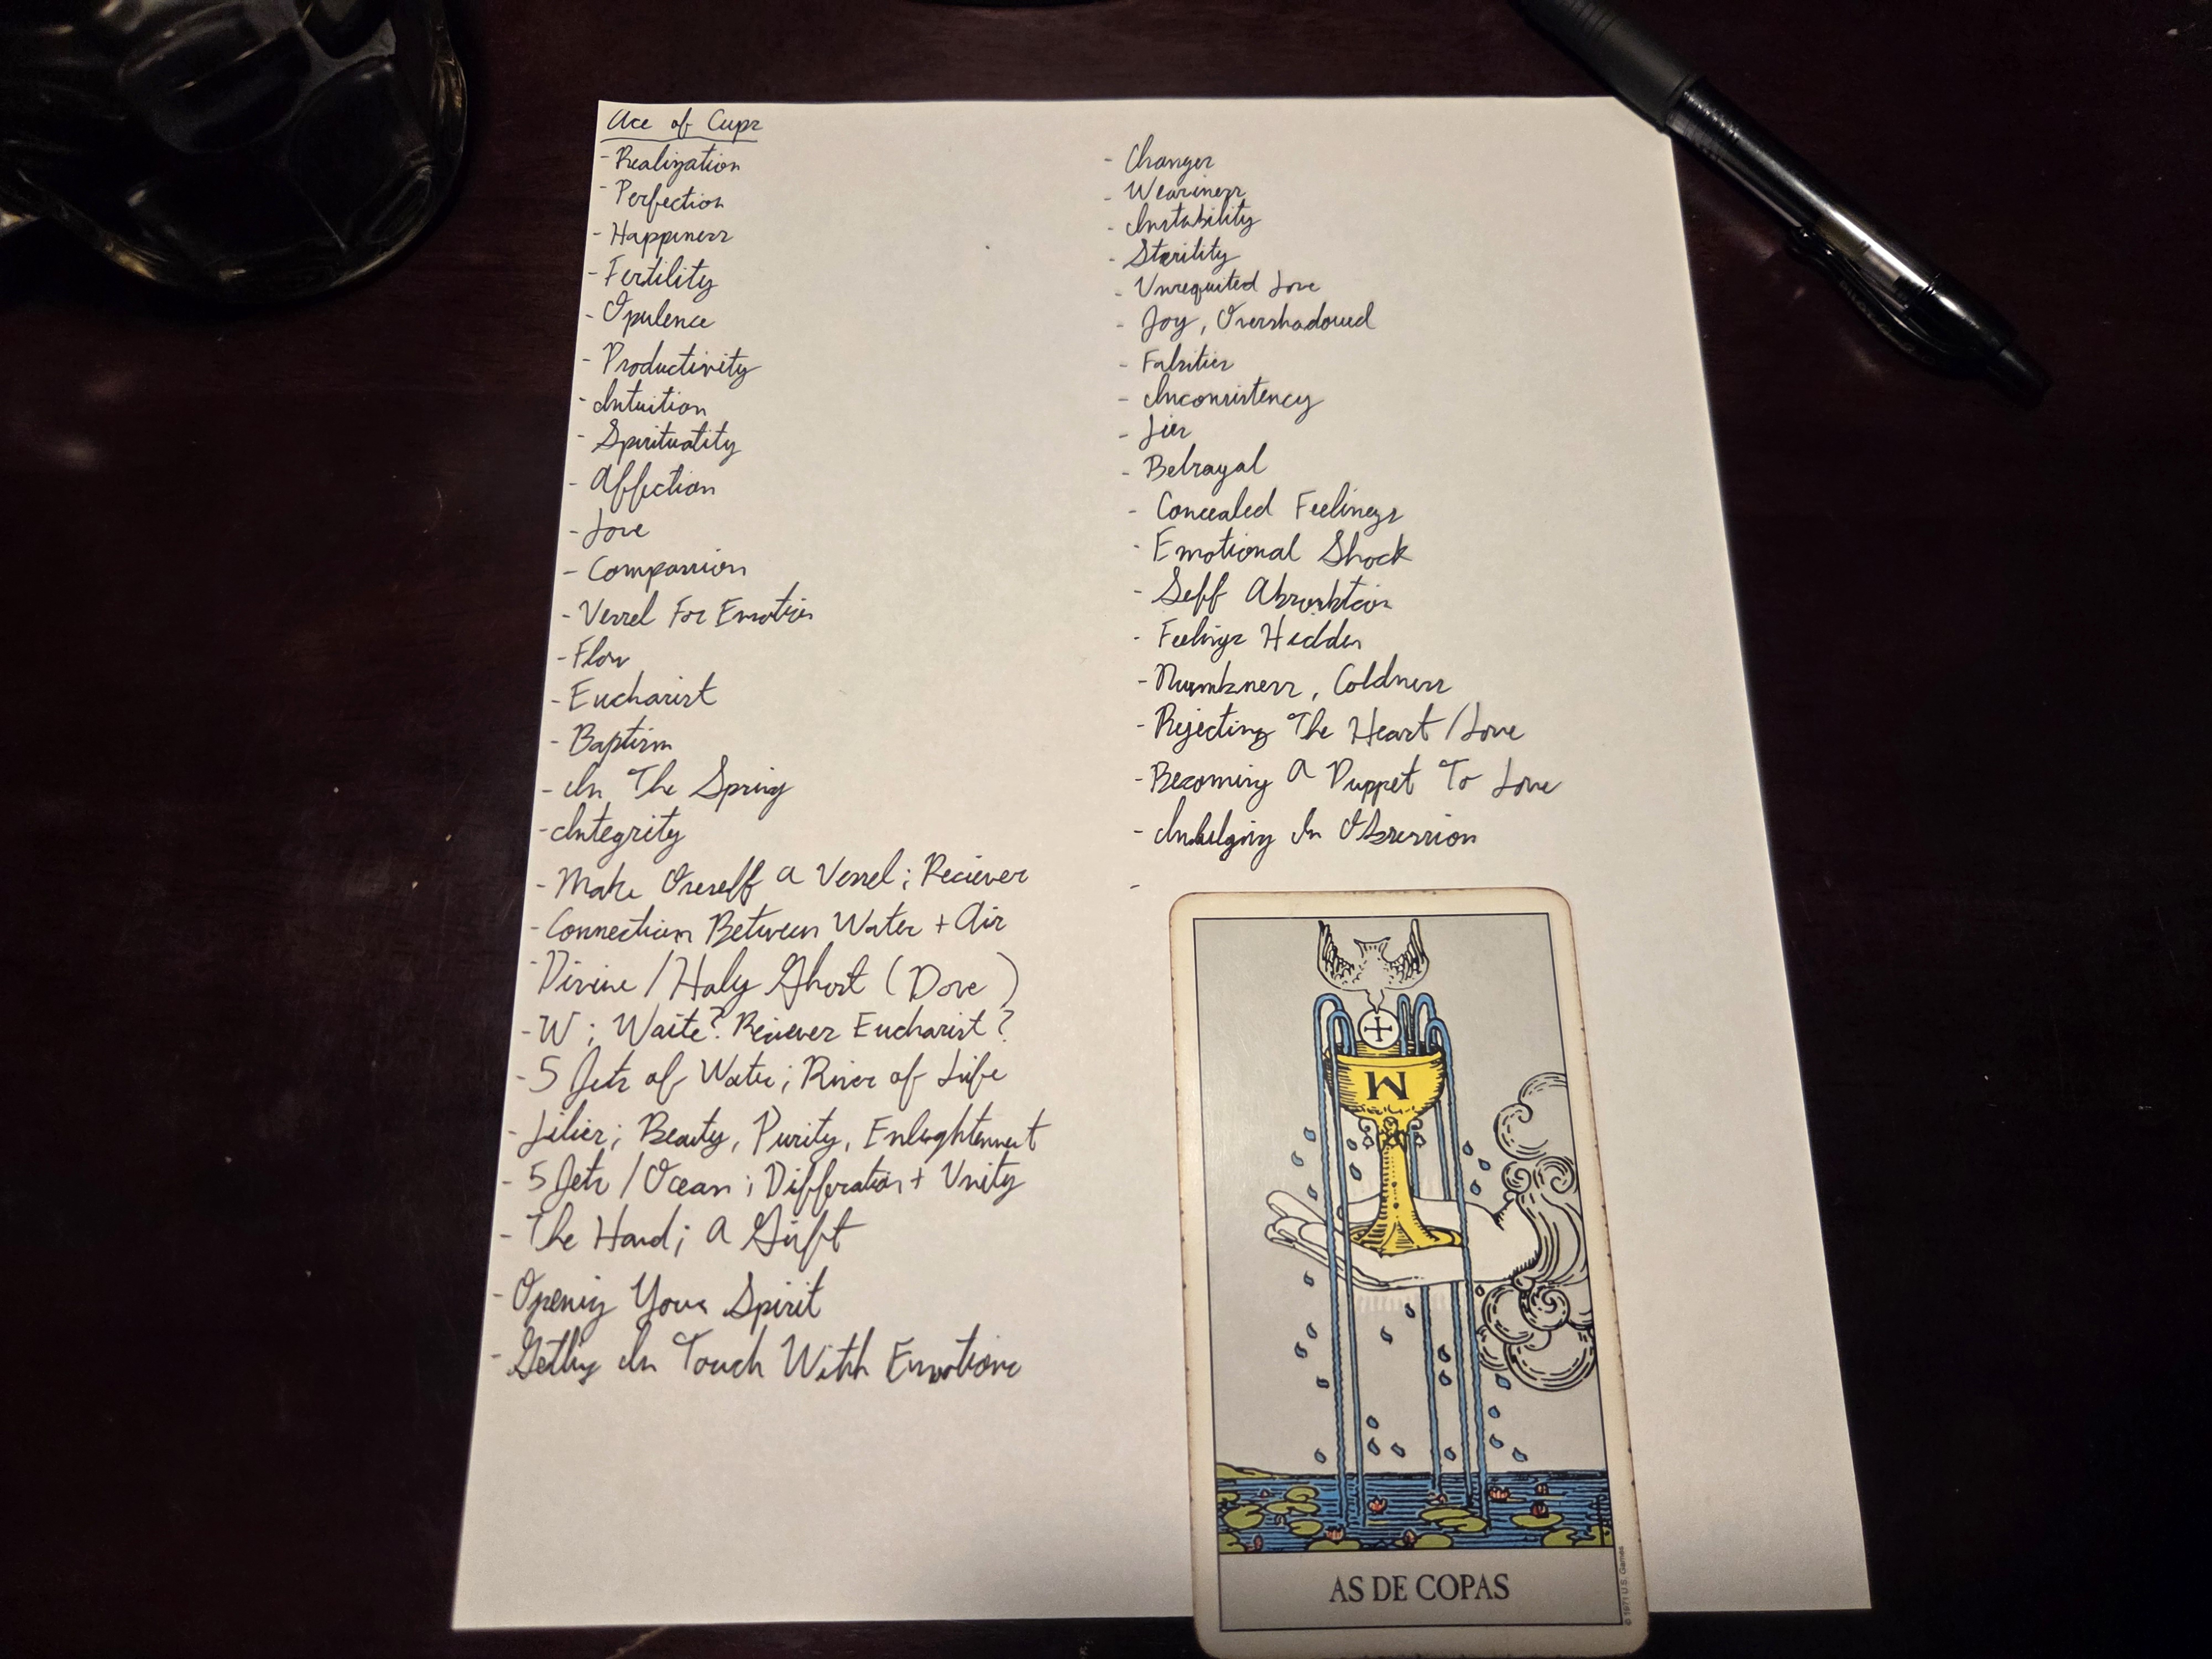 Ace of Cups
- Realization
- Perfection
- Happiness
- Fertility
- Opulence
- Productivity
- Intuition
- Spirituality
- Affection
- Love
- Compassion
- Vessel For Emotion
- Flow
- Eucharist
- Baptism
- In The Spring
- Integrity
- Make Oneself a Vessel; Reciever
- Connection Between Water + Air
- Divine / Holy Ghost (Dove)
- W; Waite? Reciever Eucharist?
- 5 Jets of Water; River of Life
- Lilies; Beauty, Purity, Enlightenment
- 5 Jets / Ocean; Differation + Unity
- The Hand; A Gift
- Opening Your Spirit
- Getting In Touch With Emotions
- Changes
- Weariness
- Instability
- Sterility
- Unrequited Love
- Joy, Overshadowed
- Falsities
- Inconsistency
- Lies
- Betrayal
- Concealed Feelings
- Emotional Shock
- Self Absorbtion
- Feelings Hidden
- Numbness, Coldness
- Rejecting The Heart / Love
- Becoming A Puppet To Love
- Indulging In Obsession
-
W
AS DE COPAS
© 1971 U.S. Games